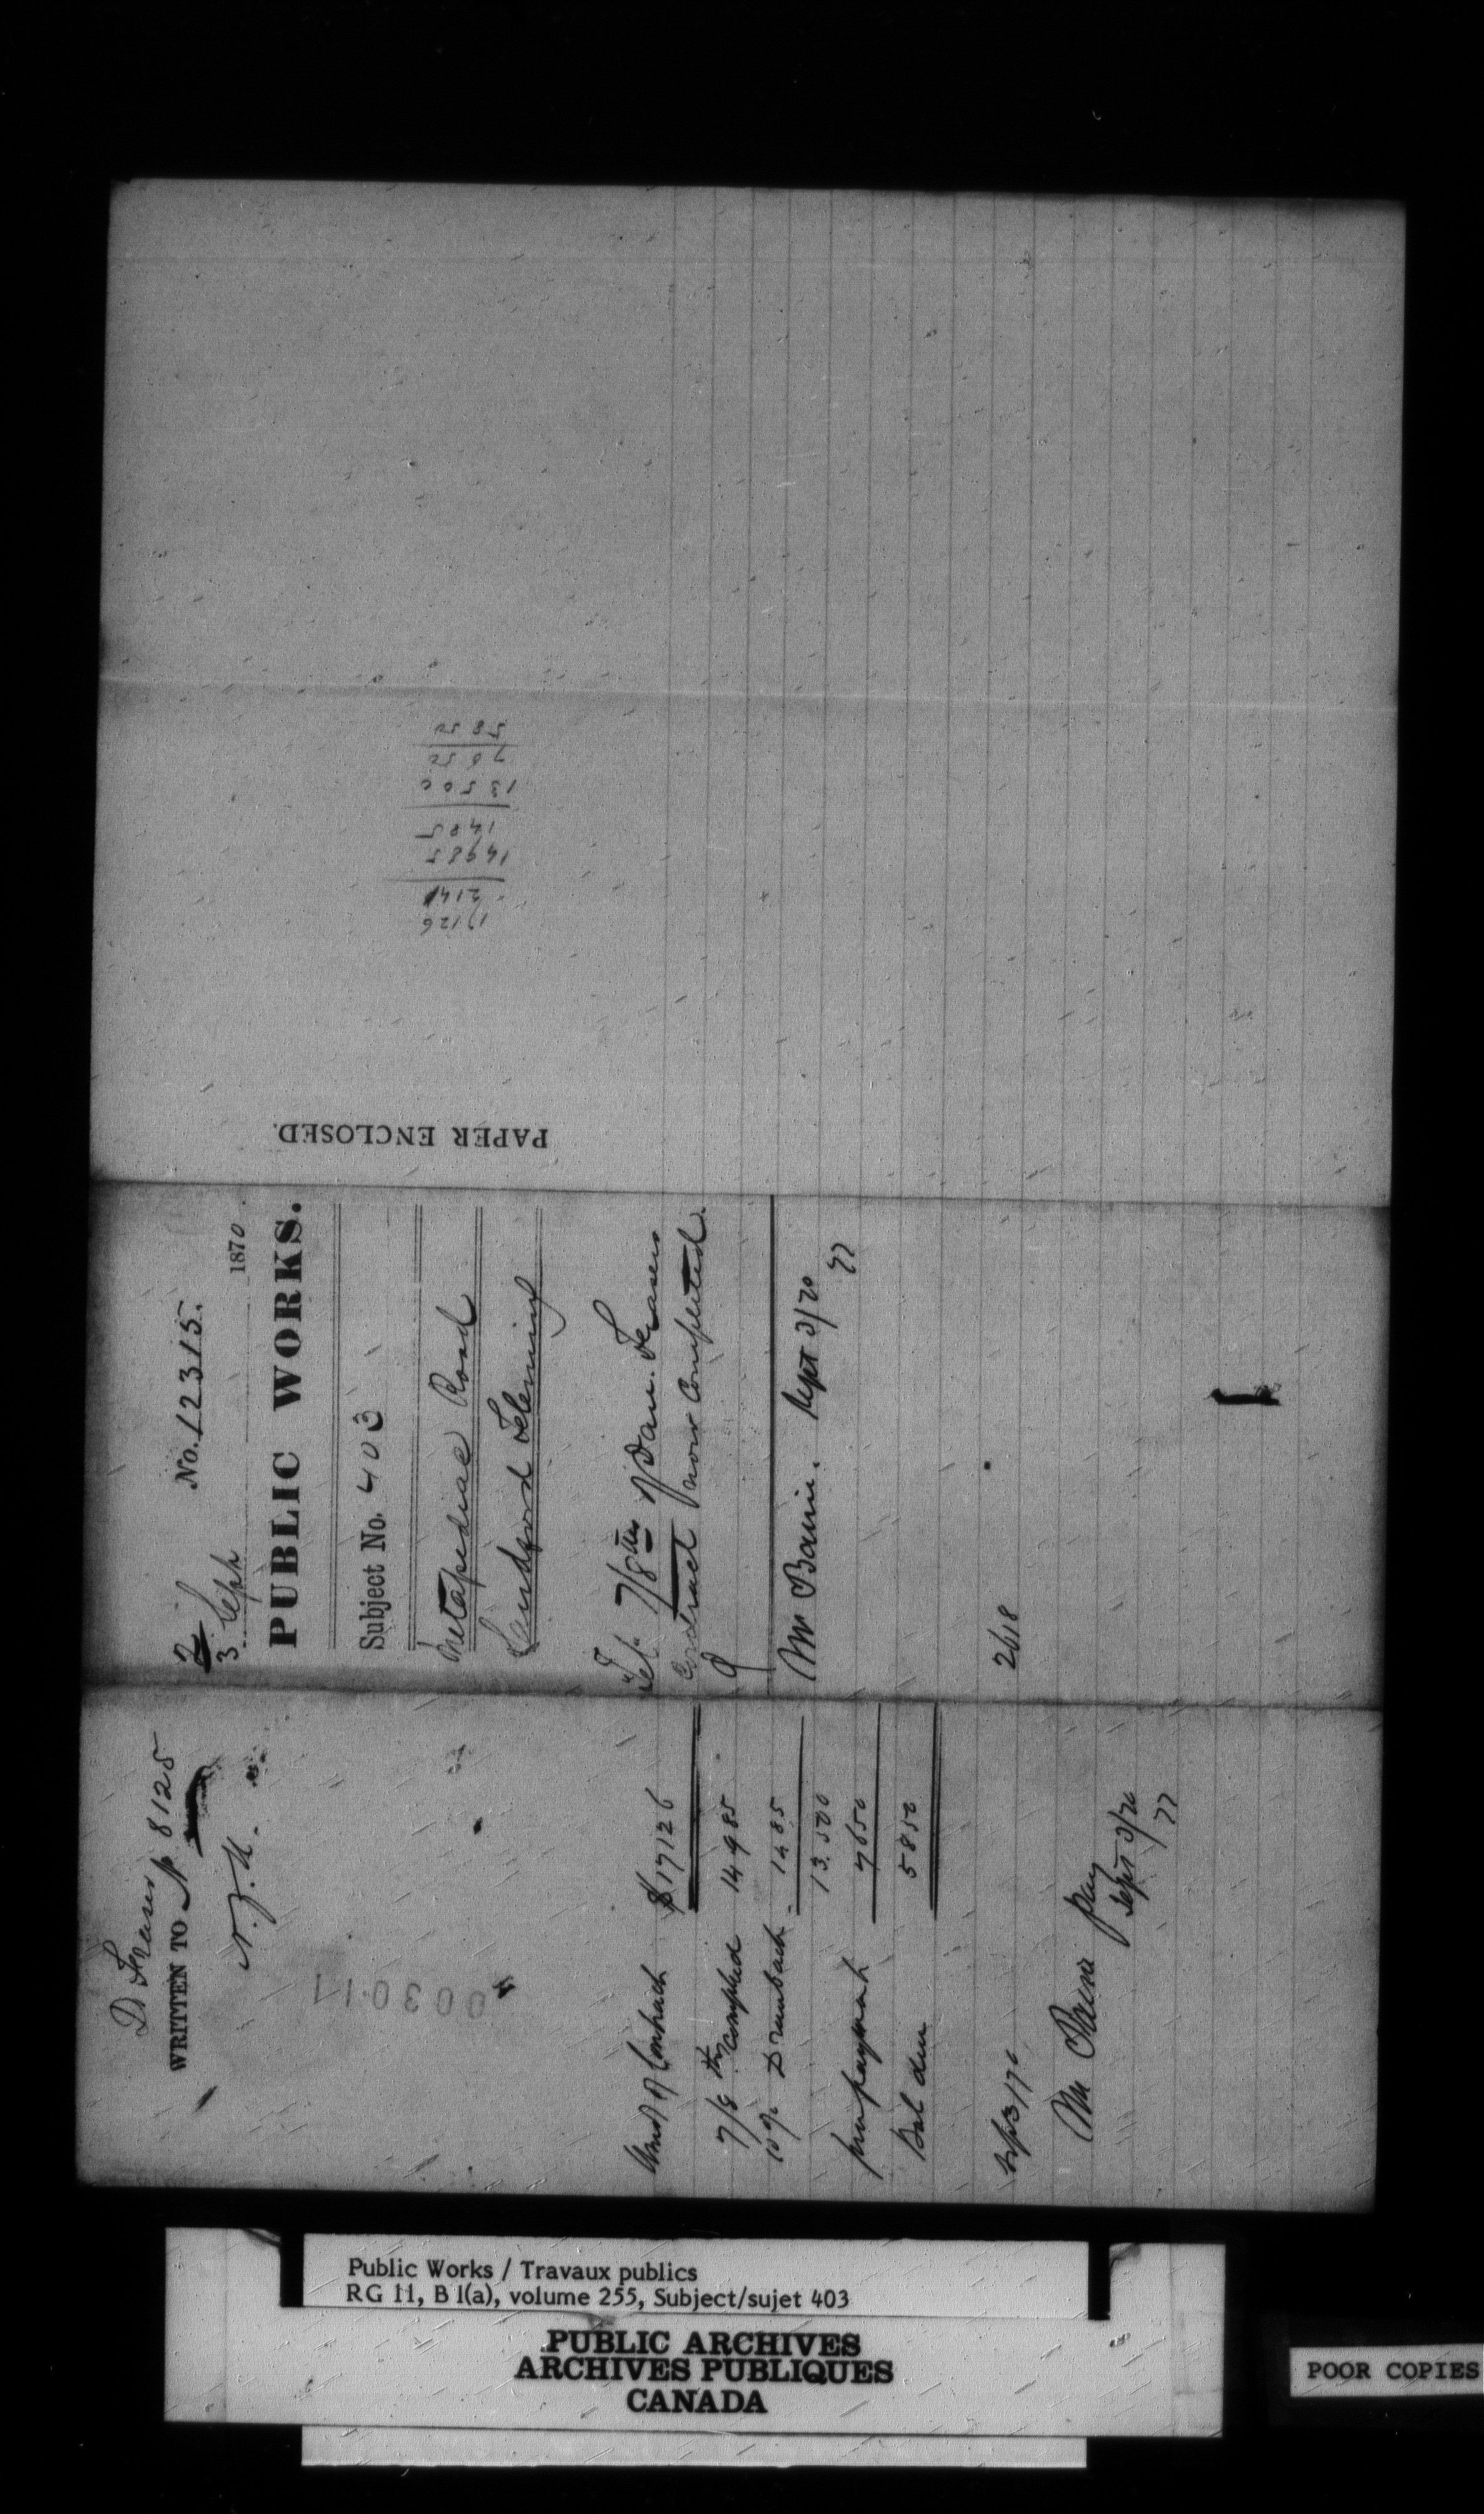 D Fraser
WRITTEN TO 8125
003011
Amt of Contract $17126
7/8ths completed 14985
10 % Drawback 1485
13.500
prev payments 7650
Bal due 5850
Sep 3/70
Mr Baine pay
Sept 3/70
77
No. 12315.
2
3 Sept 1870.
PUBLIC WORKS.
Subject No. 403
Metapediac Road
Sandford Fleming
Tel. 7/8ths of Dan. Frasers
Contract now Completed.
Mr Baine. Sept 3/70
77
2618
PAPER ENCLOSED.
17126
2141
14985
1485
13500
7650
5850
Public Works / Travaux publics
RG 11, B 1(a), volume 255, Subject/sujet 403
PUBLIC ARCHIVES
ARCHIVES PUBLIQUES
CANADA
POOR COPIES